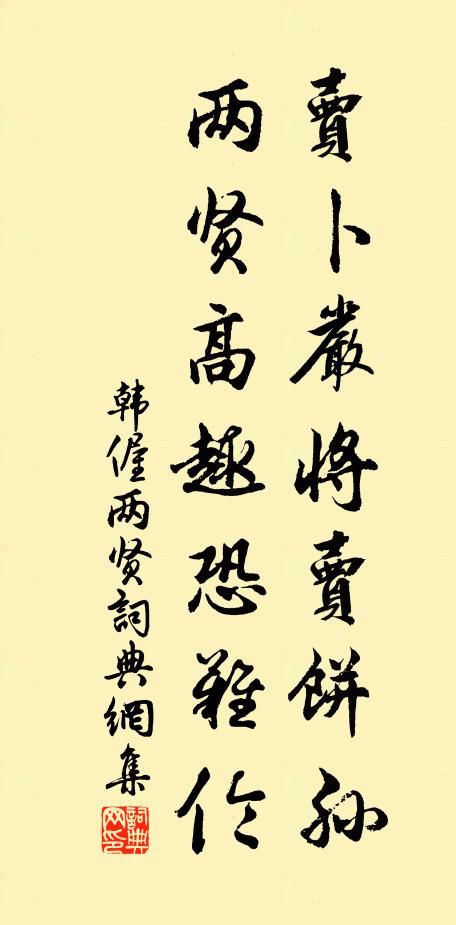 賣卜嚴將賣餅孫
两贤高趣恐難伦
韩偓两贤詞典網集
詞典网印